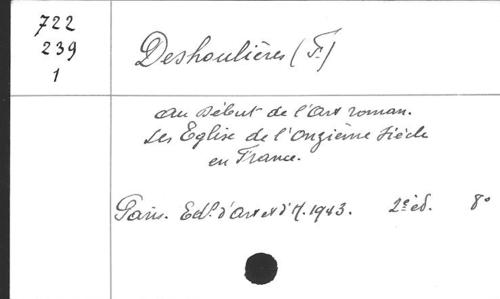 722
239
1
Deshoulières (F.)
au début de l'Art roman.
Les Eglise de l'Onzième Siècle
en France.
Paris. Edn d'Art et d'H. 1943. 2e éd. 8°